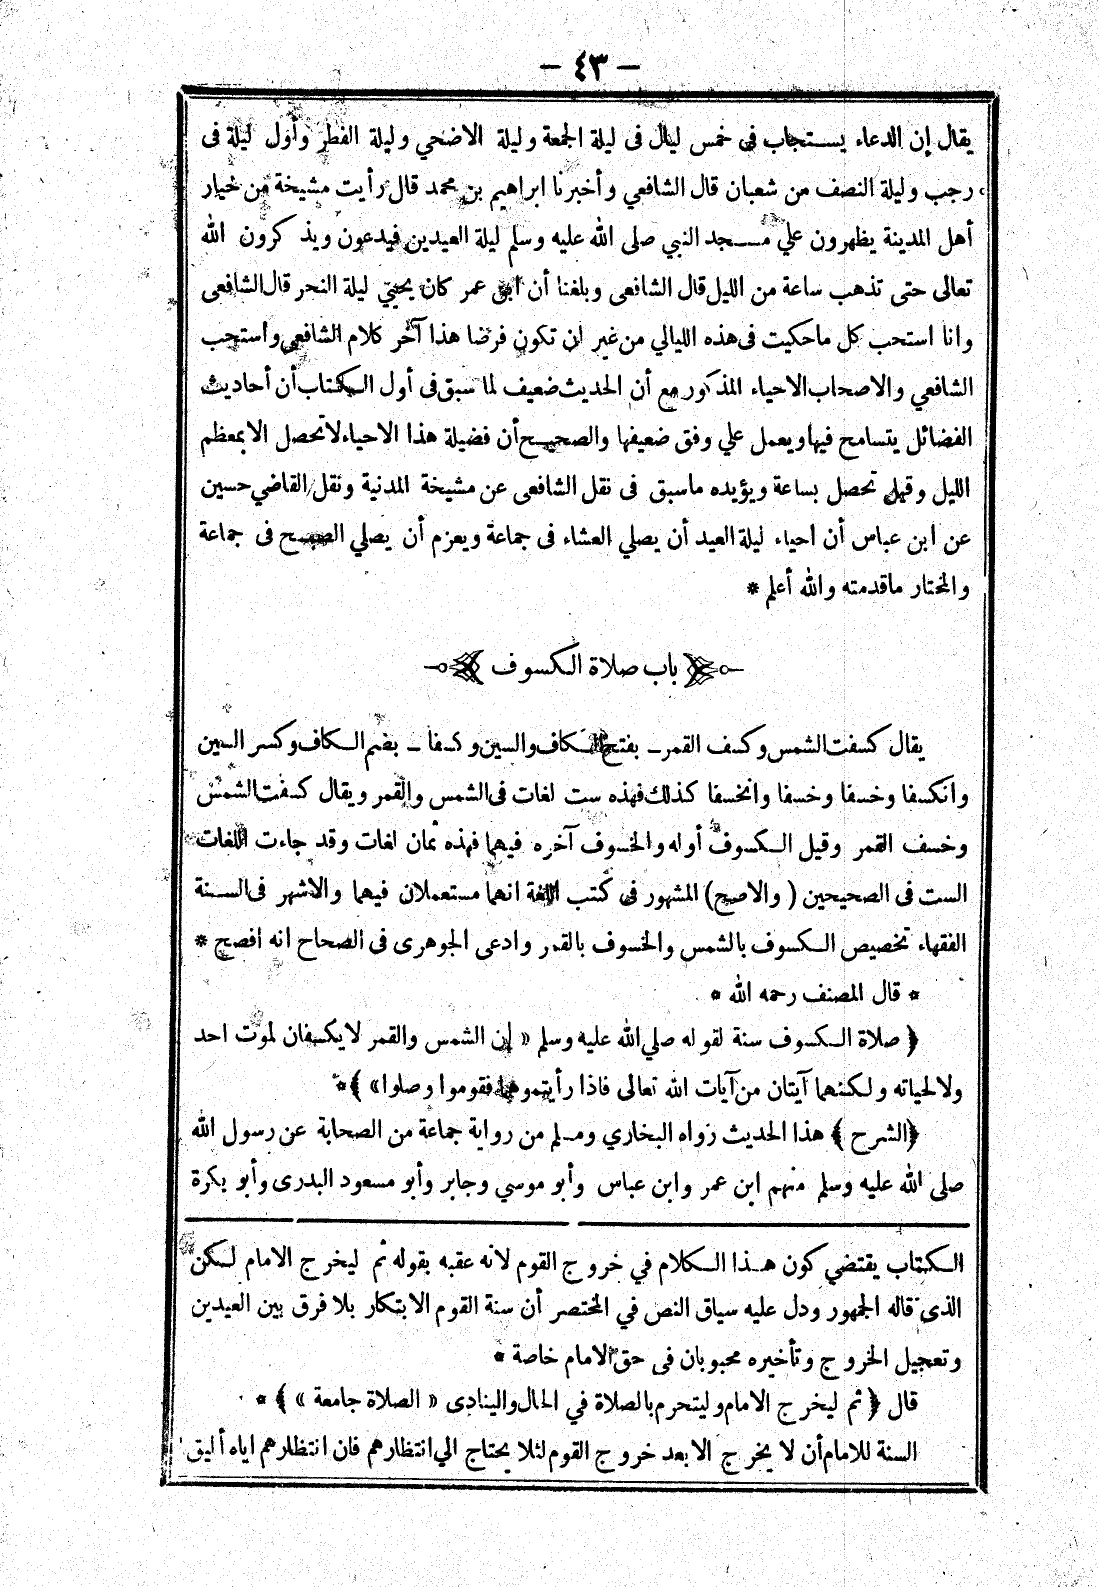 — ٤٣ —
يقال إن الدعاء يستجاب في خمس ليال فى ليلة الجمعة وليلة الاضحي وليلة الفطر وأول ليلة فى
رجب وليلة النصف من شعبان قال الشافعي وأخبرنا ابراهيم بن محمد قال رأيت مشيخة من خيار
أهل المدينة يظهرون علي مسجد النبي صلى الله عليه وسلم ليلة العيدين فيدعون ويذكرون الله
تعالى حتى تذهب ساعة من الليل قال الشافعى وبلغنا أن ابن عمر كان يحيي ليلة النحر قال الشافعى
وانا استحب كل ماحكيت فى هذه الليالي من غير ان تكون فرضا هذا آخر كلام الشافعي واستحب
الشافعي والاصحاب الاحياء المذكور مع أن الحديث ضعيف لما سبق فى أول الكتاب أن أحاديث
الفضائل يتسامح فيها ويعمل علي وفق ضعيفها والصحيح أن فضيلة هذا الاحياء لا تحصل الا بمعظم
الليل وقيل تحصل بساعة ويؤيده ماسبق فى نقل الشافعى عن مشيخة المدنية ونقل القاضي حسين
عن ابن عباس أن احياء ليلة العيد أن يصلي العشاء فى جماعة ويعزم أن يصلي الصبح فى جماعة
والمختار ماقدمته والله أعلم *
باب صلاة الكسوف
يقال كسفت الشمس وكسف القمر ـ بفتح الكاف والسين وكسفا ـ بضم الكاف وكسر السين
وانكسفا وخسفا وخسفا وانخسفا كذلك فهذه ست لغات فى الشمس والقمر ويقال كسفت الشمس
وخسف القمر وقيل الكسوف أوله والخسوف آخره فيهما فهذه ثمان لغات وقد جاءت اللغات
الست فى الصحيحين (والاصح) المشهور فى كتب اللغة انهما مستعملان فيهما والاشهر فى السنة
الفقهاء تخصيص الكسوف بالشمس والخسوف بالقمر وادعى الجوهرى فى الصحاح انه افصح *
* قال المصنف رحمه الله *
﴿ صلاة الكسوف سنة لقوله صلي الله عليه وسلم « إن الشمس والقمر لا يكسفان لموت احد
ولا لحياته ولكنهما آيتان من آيات الله تعالى فاذا رأيتموها فقوموا وصلوا» ﴾*
﴿الشرح﴾ هذا الحديث رواه البخاري ومسلم من رواية جماعة من الصحابة عن رسول الله
صلى الله عليه وسلم منهم ابن عمر وابن عباس وأبو موسي وجابر وأبو مسعود البدرى وأبو بكرة
الكتاب يقتضي كون هذا الكلام في خروج القوم لانه عقبه بقوله ثم ليخرج الامام لكن
الذى قاله الجمهور ودل عليه سياق النص في المختصر أن سنة القوم الابتكار بلا فرق بين العيدين
وتعجيل الخروج وتأخيره محبوبان فى حق الامام خاصة *
قال ﴿ ثم ليخرج الامام وليتحرم بالصلاة في الحال والينادى « الصلاة جامعة » ﴾ *
السنة للامام أن لا يخرج الا بعد خروج القوم لئلا يحتاج الي انتظارهم فان انتظارهم اياه أليق